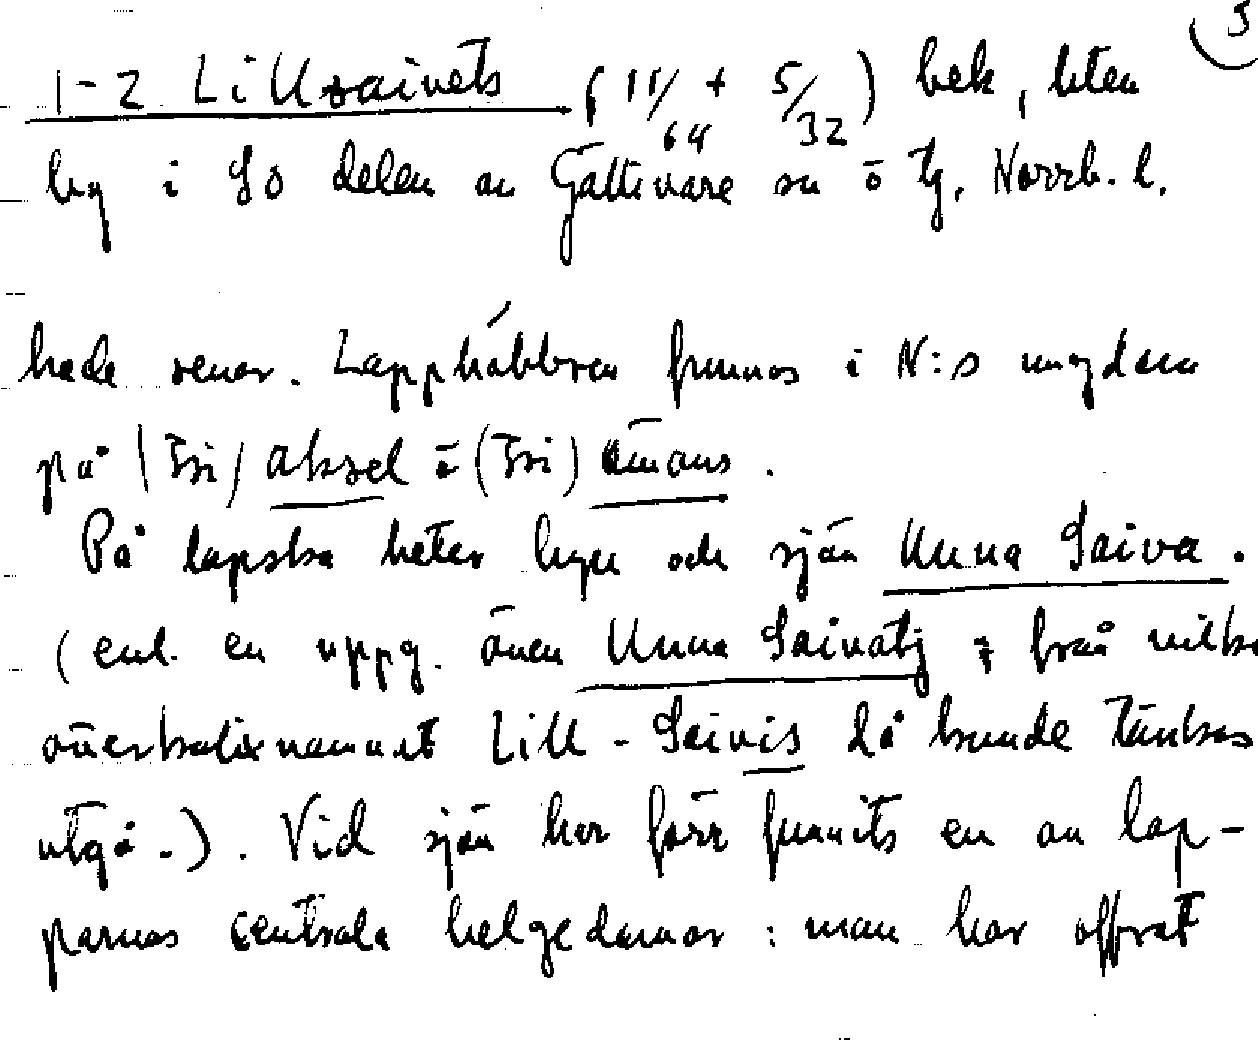 3
1-2 Lillsaivets (11/64 + 5/32) bek, liten
by i SO delen av Gällivare sn ö tg. Norrb. l.
hade senar. Lapphåbbren funnos i N:s
på (Tsi) aksel ö (Tsi)
På lapska heter byn och sjön Unna Saiva.
(enl. en uppg. även Unna Saivatj från vilke
överkalixnamnet Lill-Saivis då kunde tänkas
utgå.). Vid sjön har förr funnits en av lap-
parnas centrala helgedomar : man har offrat